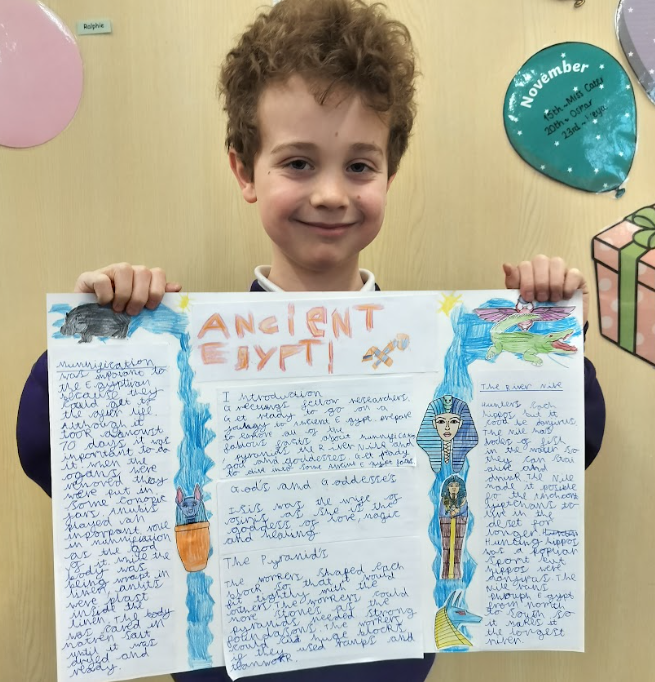 Ralphie
November
15th~Miss Cater
20th~Oskar
ANCIENT
EGYPT!
Mummification
was
the Egyptian
because they
could get to
the after life
Although it
took
70 days it was
important to do
it when the
organs were
removed they
were put in
some canopic
jars anubis
played
important role
in mummification
as the god
of it. While the
body was
being wrapt in
linen,
were
inside the
linen. The body
was cased in
salt
until it was
dryed and
ready.
I ntroduction
researchers
ready to go on a
to ancient E gypt prepare
to explore all of the
facts about
pyramids the R iver Nile and
gods and
Gods and Goddesses
I sis was the wife of
as she is the
goddess of love, magic
and healing
The Pyramids
The workers shaped each
block so that it would
fit tightly with the
others. The workers could
not stones as the
pyramids needed strong
foundations. The workers
huge blocks
if they used ramps and
teamwork.
The River Nile
hippos but it
could be dangerous
The Nile had
of fish
in the water so
they can
and
The Nile
made it possible
for the
Egyptians to
live in the
for
longer
Hunting hippos
was a popular
sport but
hippos were
dangerous. The
nile runs
through E gypt
from north
to South, so
it makes it
the longest
river.